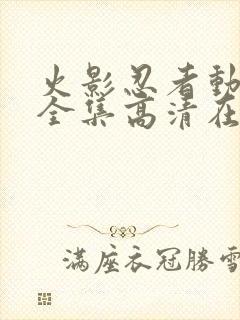 火影忍者動
全集高清在
满座衣冠勝雪